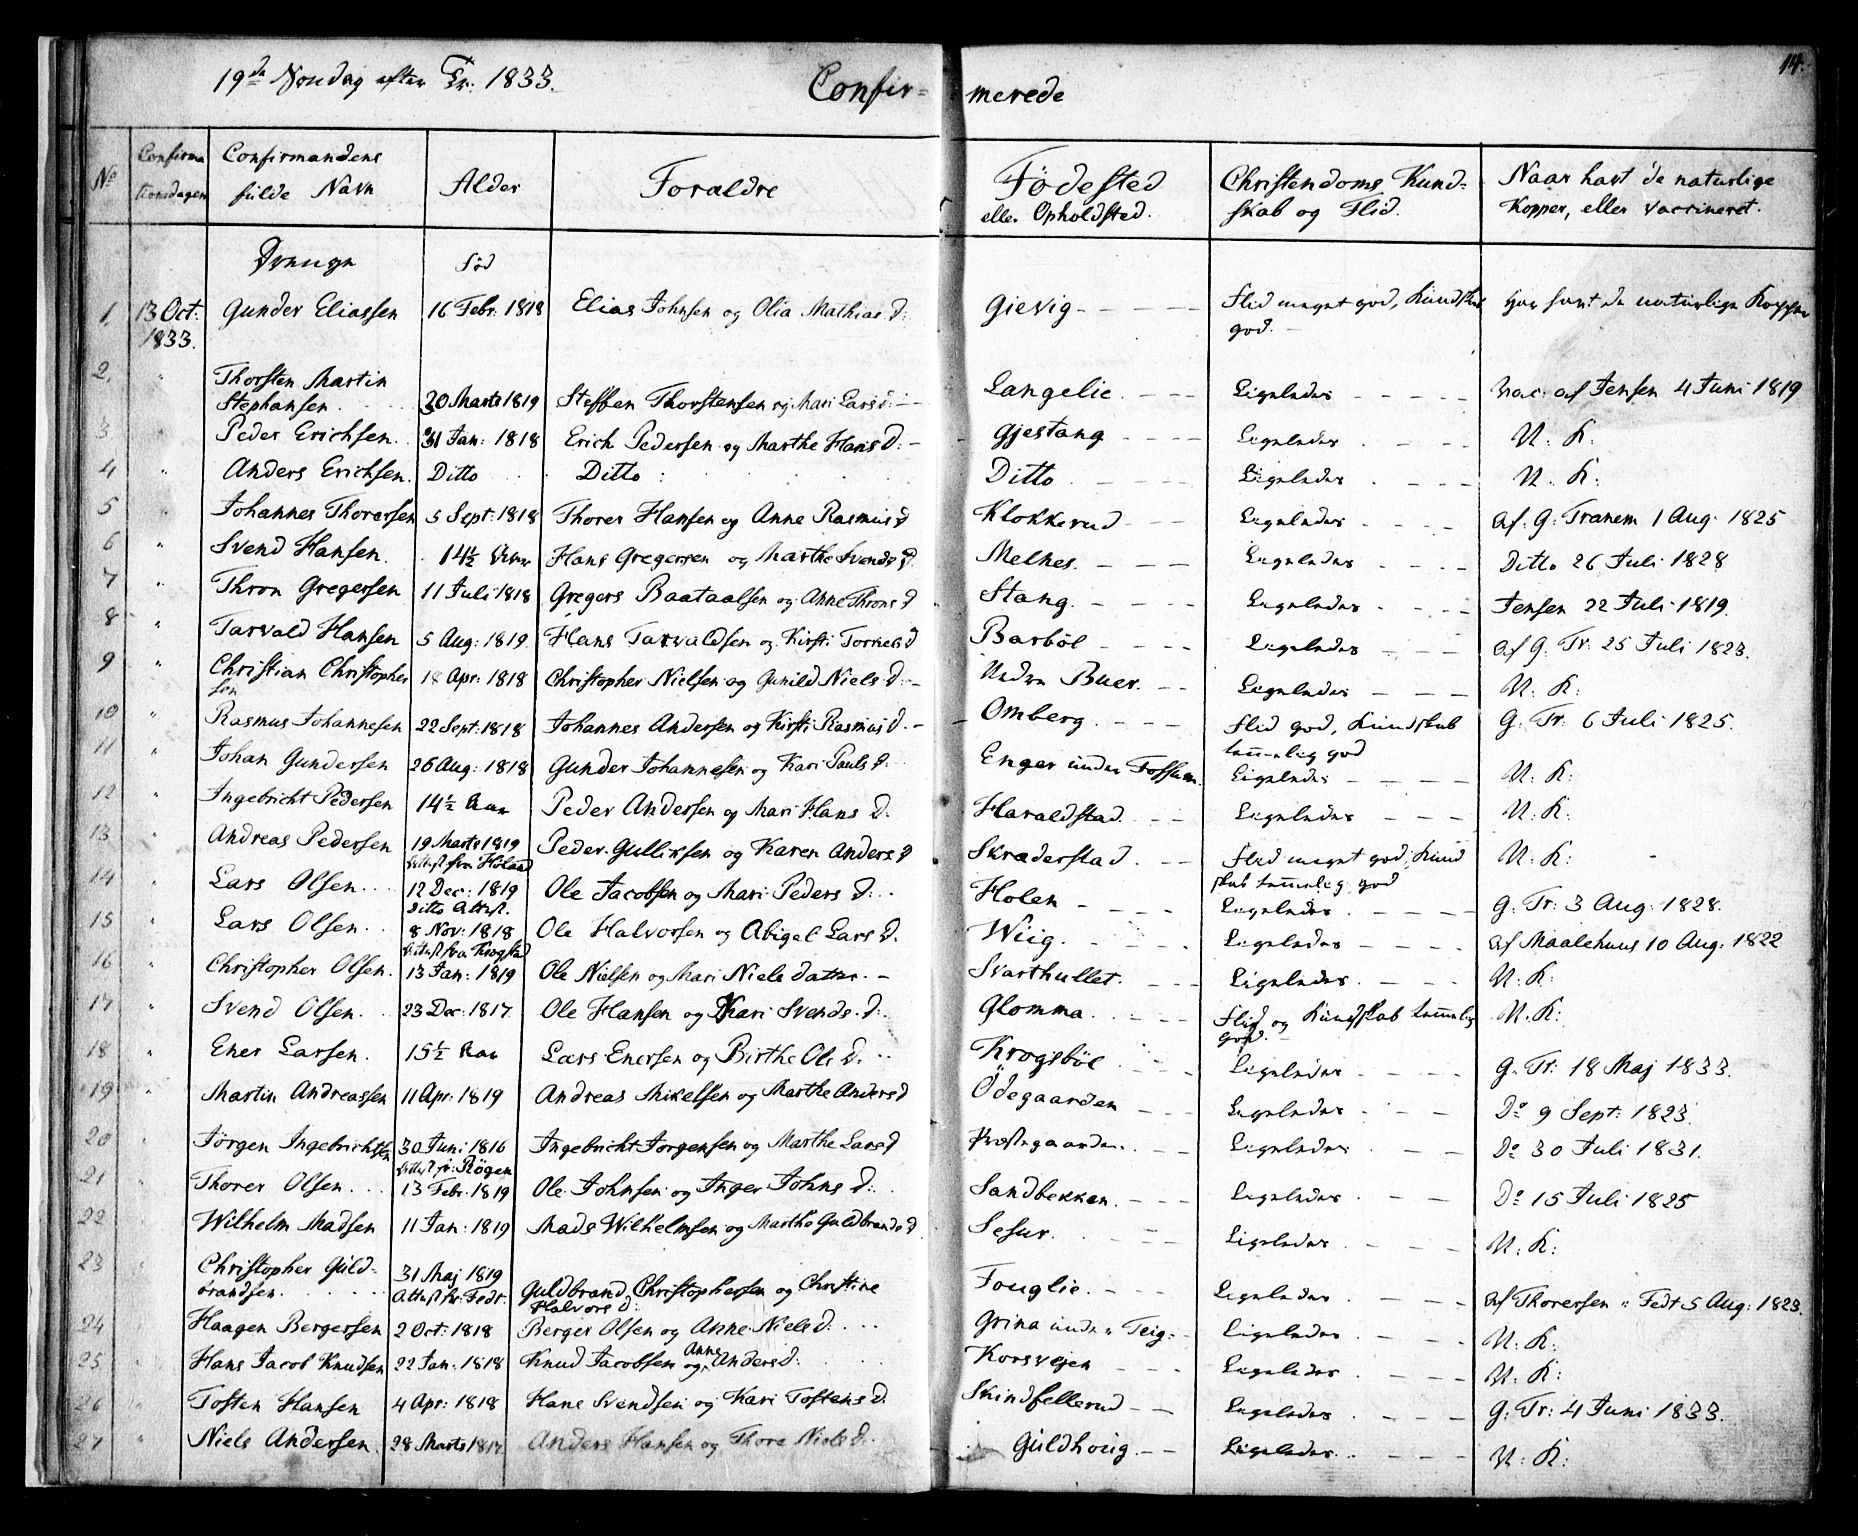 14.
19de Søndag efter Tr: 1833. Confir= merede
No Confirma tionsdagen Confirmandens fulde Navn Alder Forældre Fødested eller Opholdsted. Christendoms Kund= skab og Flid. Naar havt de naturlige Kopper, eller vaccineret.
Drenge Fød
1. 13 Oct: 1833. Gunder Eliassen 16 Febr. 1818 Elias Johnsen og Olia Mathias D: Gievig Flid meget god, Kundskab god. har havt de naturlige Kopper
2. " Thorsten Martin Stephansen 20 Marts 1819 Steffen Thorstensen og Mari Lars D: Langelie Ligeledes vac: af Jensen 4 Juni 1819
3 " Peder Erichsen 31 Jan: 1818 Erich Pedersen og Marthe Hans D: Gjestang Ligeledes N: K:
4 " Anders Erichsen Ditto Ditto Ditto Ligeledes N: K:
5 " Johannes Thorersen 5 Sept: 1818 Thorer Hansen og Anne Rasmus D Klokkerud Ligeledes af: G: Tranem 1 Aug: 1825
6 " Svend Hansen. 14½ Hans Gregersen og Marthe Svends D Melnes. Ligeledes Ditto 26 Juli 1828
7 " Thron Gregersen 11 Juli 1818 Gregers Baataalsen og Anne Throns D Stang. Ligeledes Jensen 22 Juli 1819.
8 " Tarvald Hansen 5 Aug: 1819 Hans Tarvaldsen og Kirsti Torkels D Barbøl Ligeledes af G: Tr: 25 Juli 1823.
9 " Christian Christopher sen 18 Apr: 1818 Christopher Nielsen og Gunild Niels D: Nedre Buer. Ligeledes N: K:
10 " Rasmus Johannesen 22 Sept: 1818 Johannes Andersen og Kirsti Rasmus D. Omberg Flid god, Kundskab temmelig god G: Tr: 6 Juli 1825.
11 " Johan Gundersen 26 Aug: 1818 Gunder Johannesen og Kari Pauls D: Enger under Fossum Ligeledes N: K:
12 " Ingebricht Pedersen 14½ Aar Peder Andersen og Mari Hans D: Haraldstad Ligeledes N: K:
13 " Andreas Pedersen 19 Marts 1819 Attest fra Høland Peder Gulliksen og Karen Anders D Skræderstad Flid meget god, Kund skab temmelig god N: K:
14 " Lars Olsen 12 Dec: 1819 Ditto Attest. Ole Jacobsen og Mari Peders D: Holen Ligeledes G: Tr: 3 Aug: 1828.
15 " Lars Olsen 8 Nov: 1818 Attest fra Krogstad Ole Halvorsen og Abigel Lars D. Wiig. Ligeledes af Maalehuus 10 Aug: 1822
16 " Christopher Olsen. 13 Jan: 1819 Ole Nielsen og Mari Niels datter Svarthullet. Ligeledes N: K:
17 " Svend Olsen. 23 Dec: 1817 Ole Hansen og Kari Svends D: Glomma Flid og Kundskab temmelig god. N: K:
18 " Ener Larsen. 15½ Aar Lars Enersen og Birthe Ole D: Krogsbøl Ligeledes G. Tr: 18 Maj 1833.
19 " Martin Andreassen 11 Apr: 1819 Andreas Mikelsen og Marthe Anders D Ödegaarden Ligeledes Do 9 Sept: 1823.
20 " Jørgen Ingebrichtsen 30 Juni 1816 Attest fr: Røgen Ingebricht Jorgensen og Marthe Lars D Præstegaarden. Ligeledes Do 30 Juli 1831.
21 " Thorer Olsen 13 Febr. 1819 Ole Johnsen og Inger Johns D: Sandbekken Ligeledes Do 15 Juli 1825
22 " Wilhelm Madsen 11 Jan: 1819 Mads Wilhelmsen og Marthe Guldbrands D Sesur. Ligeledes N: K:
23 " Christopher Guld= brandsen. 31 Maj 1819 Attest fr: Fedt Guldbrand Christophersen og Christine Halvors D: Fouglie Ligeledes af Thoresen Fedt 5 Aug: 1823.
24 " Haagen Bergersen 2 Oct: 1818 Berger Olsen og Anne Niels D: Grina under Teig: Ligeledes N: K:
25 " Hans Jacob Knudsen 22 Jan: 1818 Knud Jacobsen og Anne Anders D: Korsvejen Ligeledes N: K:
26 " Tosten Hansen 4 Apr: 1818 Hans Svendsen og Kari Tostens D. Skindfellerud Ligeledes G: Tr: 4 Juni 1833.
27 " Niels Andersen 28 Marts Anders Hansen og Thore Niels D: Guldhoug Ligeledes N: K: